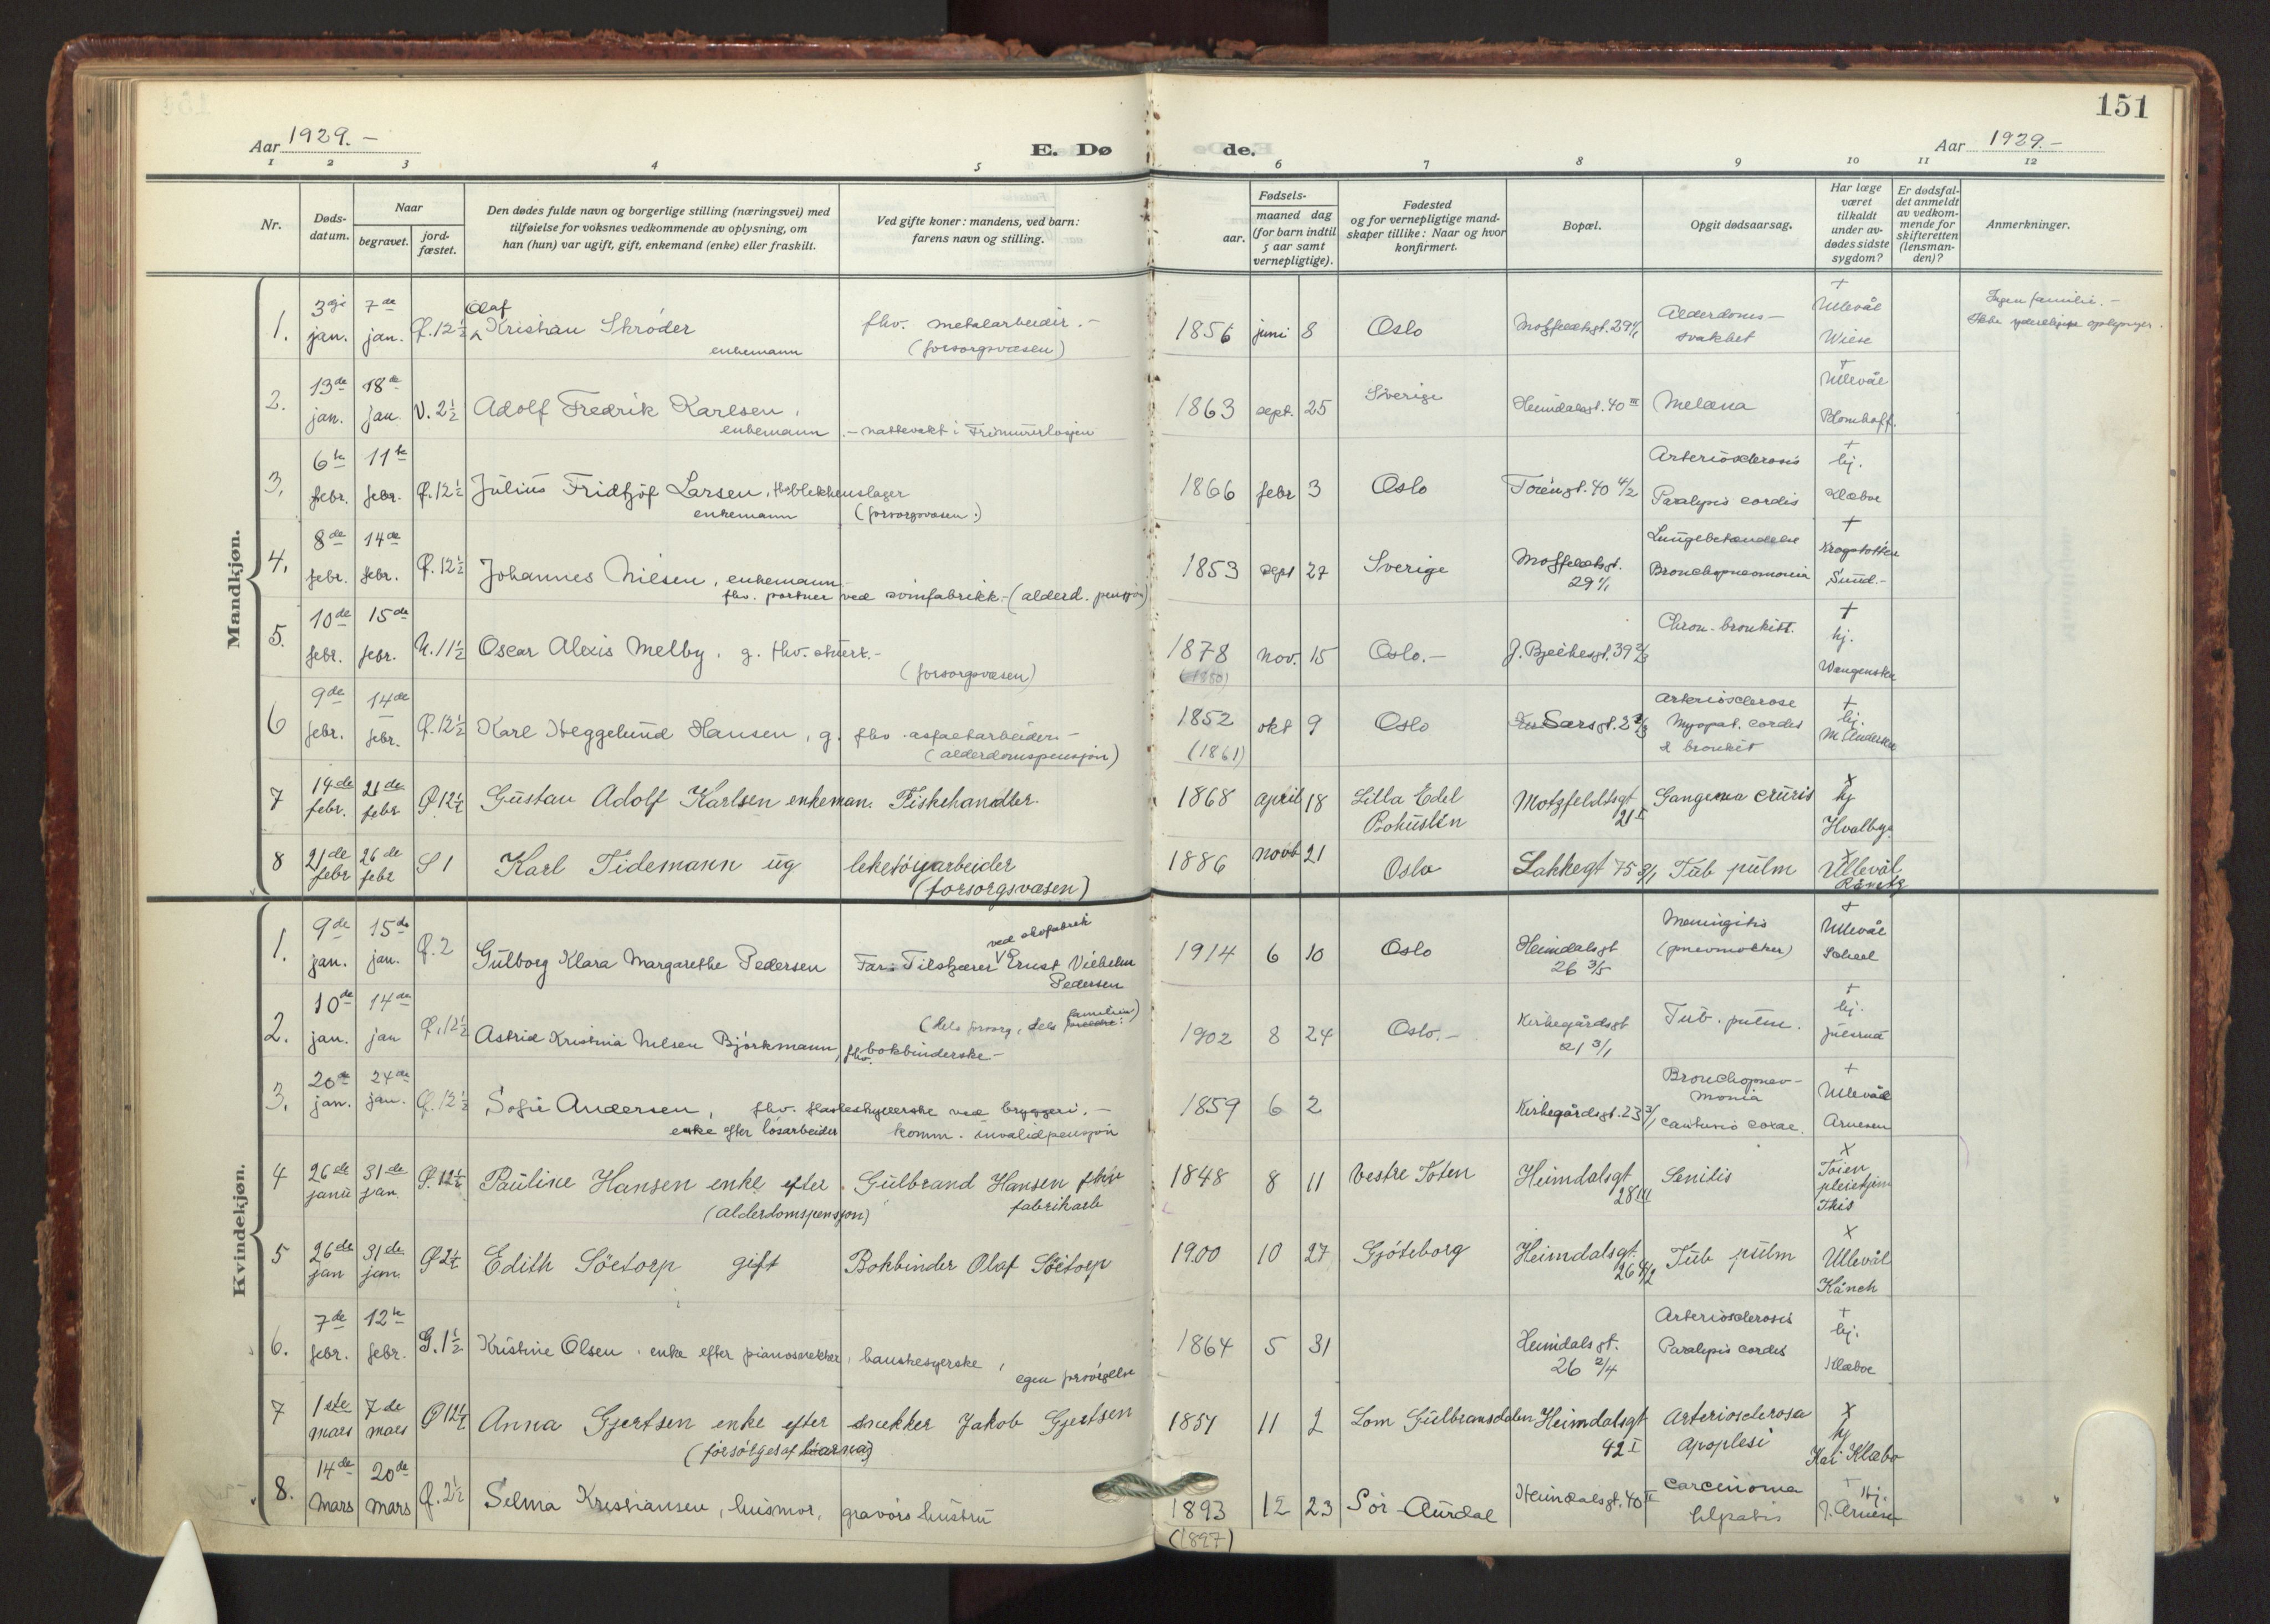 151
Aar 1929.-
E. Dø
de.
Aar 1929.-
1 2 3 4 5 6 7 8 9 10 11 12
Nr.
Døds-
datum.
Naar
begravet.
jord-
fæstet.
Den dødes fulde navn og borgerlige stilling (næringsvei) med
tilføielse for voksnes vedkommende av oplysning, om
han (hun) var ugift, gift, enkemand (enke) eller fraskilt.
Ved gifte koner: mandens, ved barn:
farens navn og stilling.
Fødsels-
aar.
maaned dag
(for barn indtil
5 aar samt
vernepligtige).
Fødested
og for vernepligtige mand-
skaper tillike: Naar og hvor
konfirmert.
Bopæl.
Opgit dødsaarsag.
Har læge
været
tilkaldt
under av-
dødes sidste
sygdom?
Er dødsfal-
det anmeldt
av vedkom-
mende for
skifteretten
(lensman-
den)?
Anmerkninger.
Mandkjøn.
1. 3dje jan. 7de jan. Ø.12½ Olaf Kristian Skrøder enkemann fhv. metalarbeider.- (forsorgsvæsen) 1856 juni 8 Oslo Motzfeldtsgt. 29 4/1 Alderdoms-
svakhet + Ullevål Wiese Ingen familie.-
Ikke yderligere oplysninger.
2. 13de jan. 18de jan. V. 2½ Adolf Fredrik Karlsen, enkemann.- nattevakt i Frimurerlosjen 1863 sept. 25 Sverige Heimdalsgt. 40 III Melæna + Ullevål Blomhoff.
3. 6te febr. 11te febr. Ø.12½ Julius Fridtjof Larsen, fhv. blikkenslager
enkemann (forsorgsvæsen.) 1866 febr 3 Oslo Tøiengt. 40 4/2 Arteriosclerosis
Paralysis cordis + hj. Klæboe
4. 8de febr. 14de febr. Ø.12½ Johannes Nilsen, enkemann
fhv. portner ved somfabrikk.- (alderd. pensjon) 1853 sept 27 Sverige Motzfeldtsgt.
29 4/1 Lungebetændelse
Bronchopneumonia + Krogstøtten Sund.-
5. 10de febr. 15de febr. N. 11½ Oscar Alexis Melby, g. fhv. stuert.-
(forsorgsvæsen) 1878 (1880) nov. 15 Oslo.- J. Bjelkesgt. 39 2/3 Chron. bronkitt. + hj. Wangensten
6 9de febr. 14de febr. Ø.12½ Karl Heggelund Hansen, g. fhv. asfaltarbeider.-
(alderdomspensjon) 1852 (1861) okt 9 Oslo Sarsgt. 2 2/3 Arteriosclerose
Myopat. cordis
& bronkit + hj. M. Andersen
7 14de febr. 21de febr Ø 12½ Gustav Adolf Karlsen enkeman. Fiskehandler. 1868 april 18 Lilla Edel
Bohuslen Motzfeldtsgt
21 I Gangrena cruris x hj Hvalbye
8 21de febr 26de febr S 1 Karl Tidemann ug leketøiarbeider
(forsorgsvæsen) 1886 novb 21 Oslo Lakkegt 75 3/1 Tub pulm x Ullevål
Kvindekjøn.
1. 9de jan. 15de jan. Ø. 2 Gulborg Klara Margarethe Pedersen Far: Tilskjærer ved skofabrik Ernst Vilhelm
Pedersen 1914 6 10 Oslo Heimdalsgt
26 3/5 Meningitis
(pneumokker) + Ullevål Scheel
2. 10de jan. 14de jan Ø. 12½ Astrid Kristina Nilsen Björkmann, fhv. bokbinderske-
(dels forsorg, dels familien) 1902 8 24 Oslo.- Kirkegårdsgt
21 3/1 Tub. pulm. + hj.
3. 20de jan. 24de jan. Ø.12½ Sofie Andersen, fhv. flaskeskyllerske ved bryggeri.-
enke efter løsarbeider komm. invalidpensjon 1859 6 2 Kirkegårdsgt. 23 3/1 Bronchopnev-
monia
contusio coxae. + Ullevål Arnesen
4 26de janu 31de jan Ø.12½ Pauline Hansen enke efter Gulbrand Hansen fhv
fabrikarb
(alderdomspensjon) 1848 8 11 Vestre Toten Heimdalsgt
28 III Senilis x Tøien pleiehjem Thiis
5 26de jan 31de jan. Ø 2½ Edith Söetorp gift Bokbinder Olaf Söetorp 1900 10 27 Gjøteborg Heimdalsgt.
26 4/2 Tub pulm x Ullevål
6. 7de febr. 12te febr. G. 1½ Kristine Olsen, enke efter pianosnekker, hanskesyerske,
egen forsørgelse 1864 5 31 Heimdalsgt.
26 2/4 Arteriosclerosis
Paralysis cordis + hj. Klæboe
7 1ste mars 7de mars Ø 12½ Anna Gjertsen enke efter snekker Jakob Gjertsen
(forsørges af barna) 1851 11 2 Lom Gulbransdalen Heimdalsgt
42 I Arteriosclerosa
apoplesi x hj Kai Klæbo
8. 14de mars 20de mars Ø. 2½ Selma Kristiansen, husmor, gravørs hustru 1893 (1897) 12 23 Sör-Aurdal Heimdalsgt. 40 II Carcinoma
hepatis + Hj. J. Arnesen